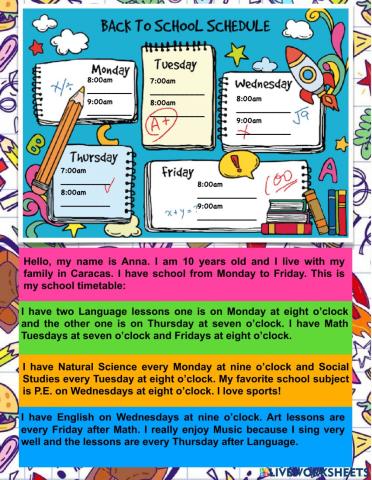 BACK TO SCHOOL SCHEDULE
Monday
8:00am
9:00am
x/½
Tuesday
7:00am
8:00am
A+
Wednesday
8:00am
9:00am
Thursday
7:00am
8:00am
Friday
8:00am
9:00am
100
x+y=
Hello, my name is Anna. I am 10 years old and I live with my
family in Caracas. I have school from Monday to Friday. This is
my school timetable:
I have two Language lessons one is on Monday at eight o'clock
and the other one is on Thursday at seven o'clock. I have Math
Tuesdays at seven o'clock and Fridays at eight o'clock.
I have Natural Science every Monday at nine o'clock and Social
Studies every Tuesday at eight o'clock. My favorite school subject
is P.E. on Wednesdays at eight o'clock. I love sports!
I have English on Wednesdays at nine o'clock. Art lessons are
every Friday after Math. I really enjoy Music because I sing very
well and the lessons are every Thursday after Language.
LIVEWORKSHEETS